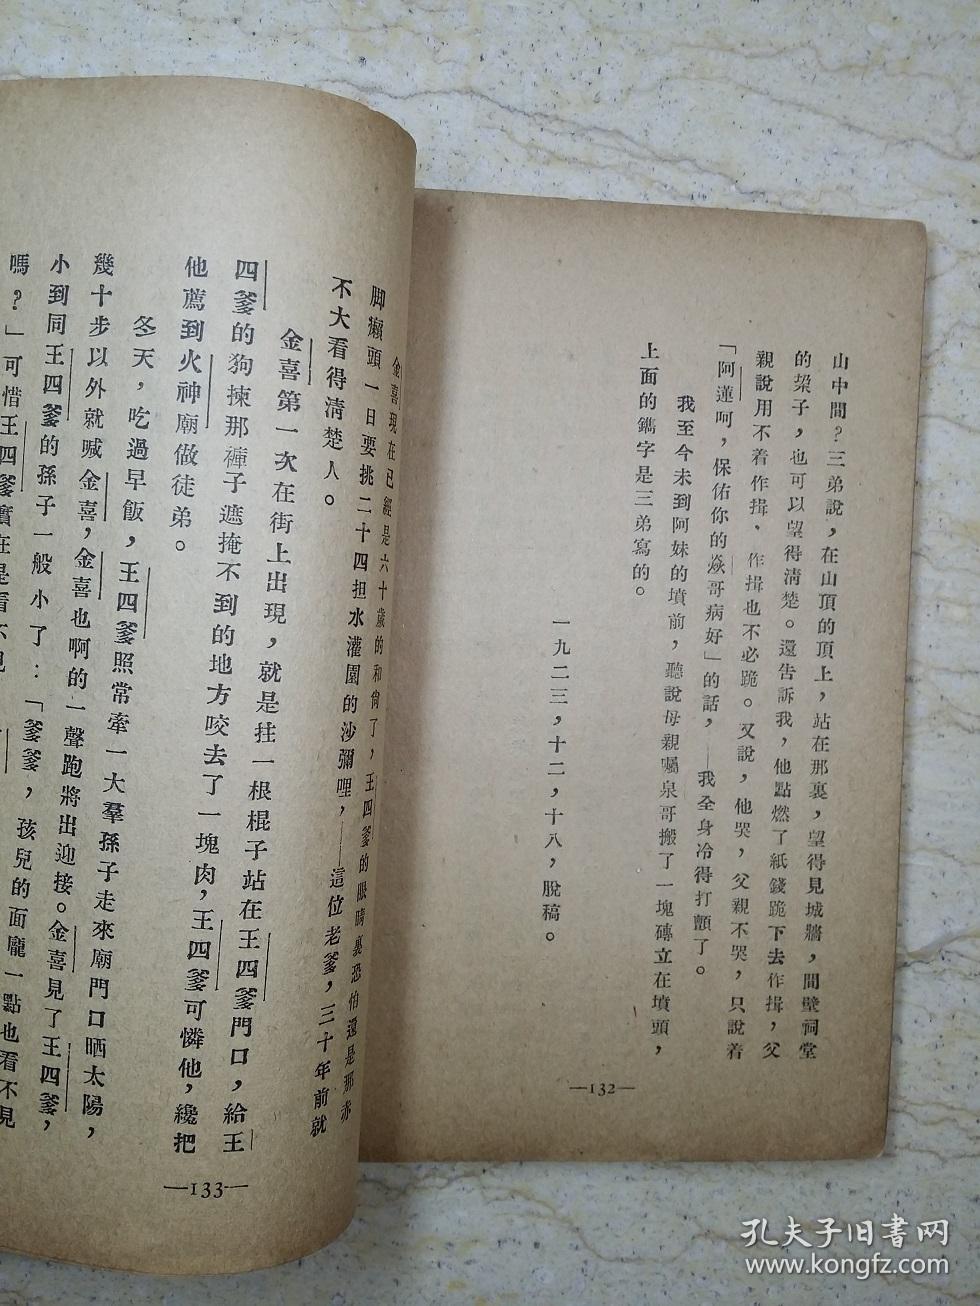 山中間？三弟說，在山頂的頂上，站在那裏，望得見城牆，間壁祠堂
的㮮子，也可以望得清楚。還告訴我，他點燃了紙錢跪下去作揖，父
親說用不着作揖，作揖也不必跪。又說，他哭，父親不哭，只說着
「阿蓮呵，保佑你的焱哥病好」的話，——我全身冷得打顫了。
我至今未到阿妹的墳前，聽說母親囑泉哥搬了一塊磚立在墳頭，
上面的鐫字是三弟寫的。
一九二三，十二，十八，脫稿。
—132—
金喜現在已經是六十歲的和尙了，王四爹的眼睛裏恐怕還是那赤
脚癩頭一日要挑二十四担水灌園的沙彌哩，——這位老爹，三十年前就
不大看得清楚人。
金喜第一次在街上出現，就是拄一根棍子站在王四爹門口，給王
四爹的狗揀那褲子遮掩不到的地方咬去了一塊肉，王四爹可憐他，纔把
他薦到火神廟做徒弟。
冬天，吃過早飯，王四爹照常牽一大羣孫子走來廟門口晒太陽，
幾十步以外就喊金喜，金喜也啊的一聲跑將出迎接。金喜見了王四爹，
小到同王四爹的孫子一般小了：「爹爹，孩兒的面龐一點也看不見
嗎？」可惜王四爹實在是看不見
—133—
孔夫子旧書网
www.kongfz.com